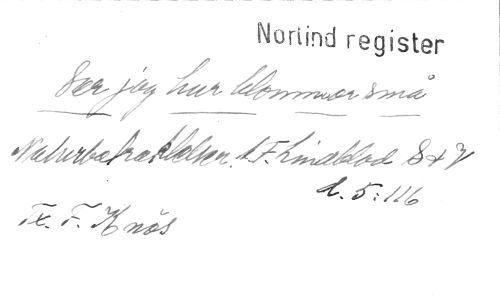 Norlind register
Ser jag hur blommor små
Naturbetraktelsen. A F. Lindblad S & V
d. 5:116
Tx. F. Knös